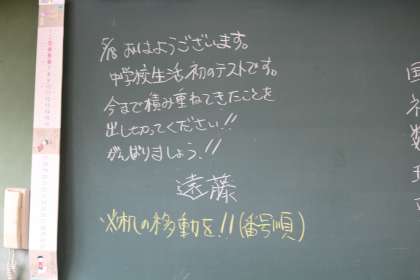 5/18 おはようございます。
中学校生活初のテストです。
今まで積み重ねてきたことを
出し切ってください!!
がんばりましょう!!
遠藤
※机の移動を!!(番号順)
国
社
数